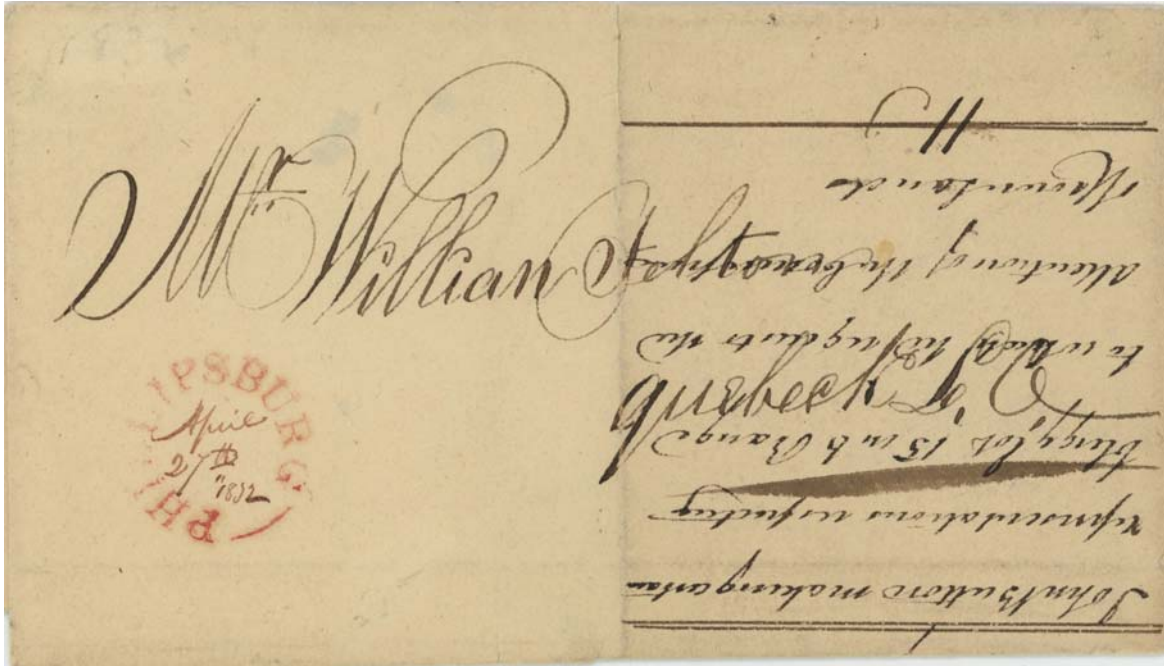 Mr William
Quebeck
PHILIPSBURG
April
27th
1832
11
John Button making certain
representations respecting
lot 15 in 6 Range
to which he requests the
attention of the